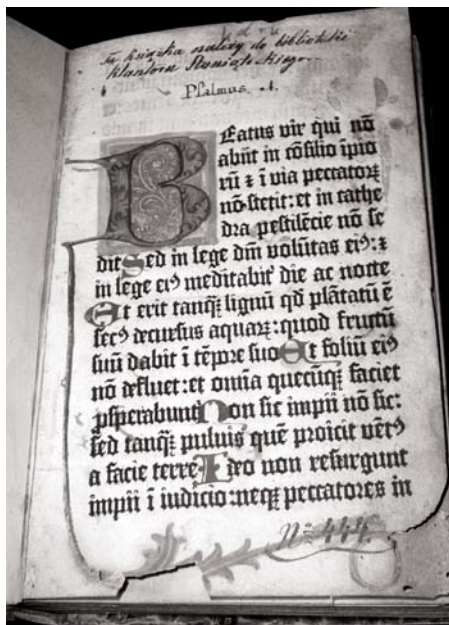 Ta książka należy do biblioteki
klasztoru Staniąteckiego.
Psalmus 1.
Beatus vir qui nō
abiit in cōsilio īpio
rū ⁊ ī via peccatoꝝ
nō stetit: et in cathe
dra pestilēcie nō se
dit Sed in lege dm̄ volūtas eiꝰ: ⁊
in lege eiꝰ meditabit᷑ die ac nocte
Et erit tanqꝫ lignū qd̄ plātatū ē
secꝰ decursus aquaꝝ: quod fructū
suū dabit ī tēpore suo Et foliū eiꝰ
nō defluet: et om̄ia quecūqꝫ faciet
ꝓsperabunt᷑ Non sic impii nō sic:
sed tanqꝫ puluis quē proiicit vētꝰ
a facie terre Ideo non resurgunt
impii ī iudicio: neqꝫ peccatores in
No 444.